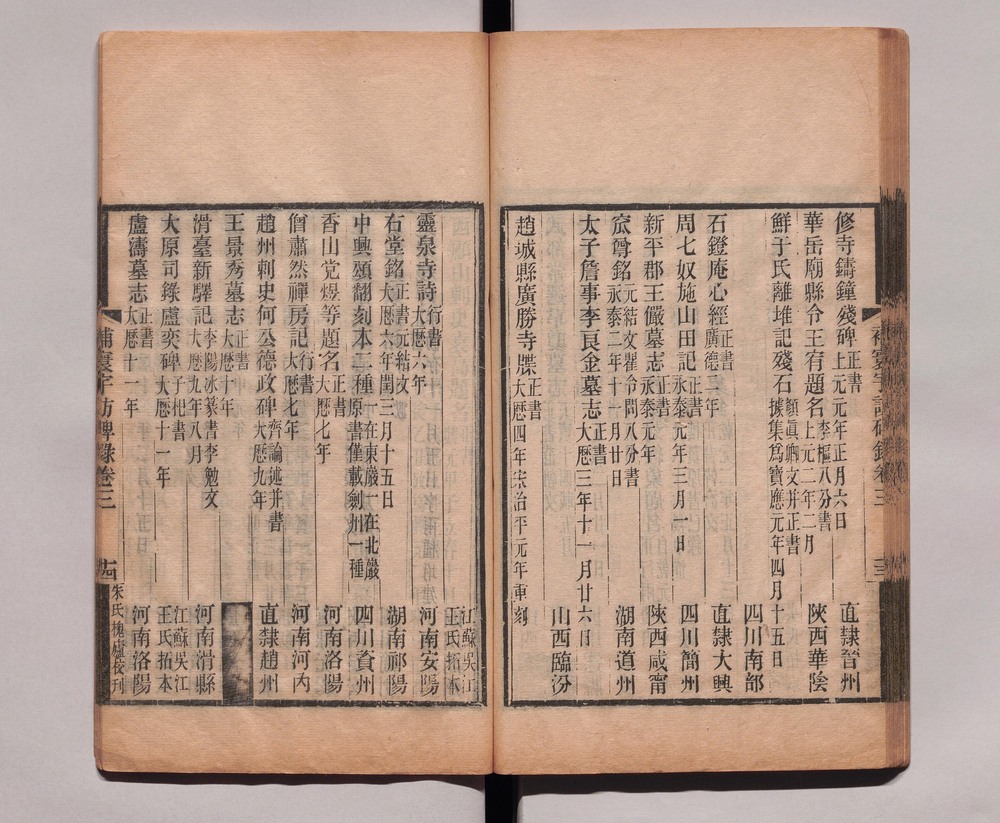 修寺鑄鐘殘碑 正書 上元元年正月六日 直隸晉州
華岳廟縣令王宥題名 李樞八分書 上元二年二月 陝西華陰
鮮于氏離堆記殘石 顏眞卿文并正書 據集爲寶應元年四月十五日 四川南部
石鐙庵心經 正書 廣德二年 直隸大興
周七奴施山田記 正書 永泰元年三月一日 四川簡州
新平郡王儼墓志 正書 永泰元年 陝西咸甯
窊尊銘 元結文瞿令問八分書 永泰二年十一月廿日 湖南道州
太子詹事李良金墓志 正書 大歷三年十一月廿六日
趙城縣廣勝寺牒 正書 大歷四年宋治平元年重刻 山西臨汾
補寰宇訪碑錄卷三
十三
靈泉寺詩 行書 大歷六年 河南安陽 江蘇吳江王氏拓本
右堂銘 正書元結文 大歷六年閏三月十五日 湖南祁陽
中興頌翻刻本二種 一在東巖一在北巖 原書僅載劍州一種 四川資州
香山党煜等題名 正書 大歷七年 河南洛陽
僧肅然禪房記 行書 大歷七年 河南河內
趙州刺史何公德政碑 齊論述并書 大歷九年 直隸趙州
王景秀墓志 正書 大歷十年
滑臺新驛記 李陽冰篆書李勉文 大歷九年八月 河南滑縣
大原司錄盧奕碑 子杞書 大歷十一年 江蘇吳江王氏拓本
盧濤墓志 正書 大歷十一年 河南洛陽
補寰宇訪碑錄卷三
十四
朱氏槐廬校刊